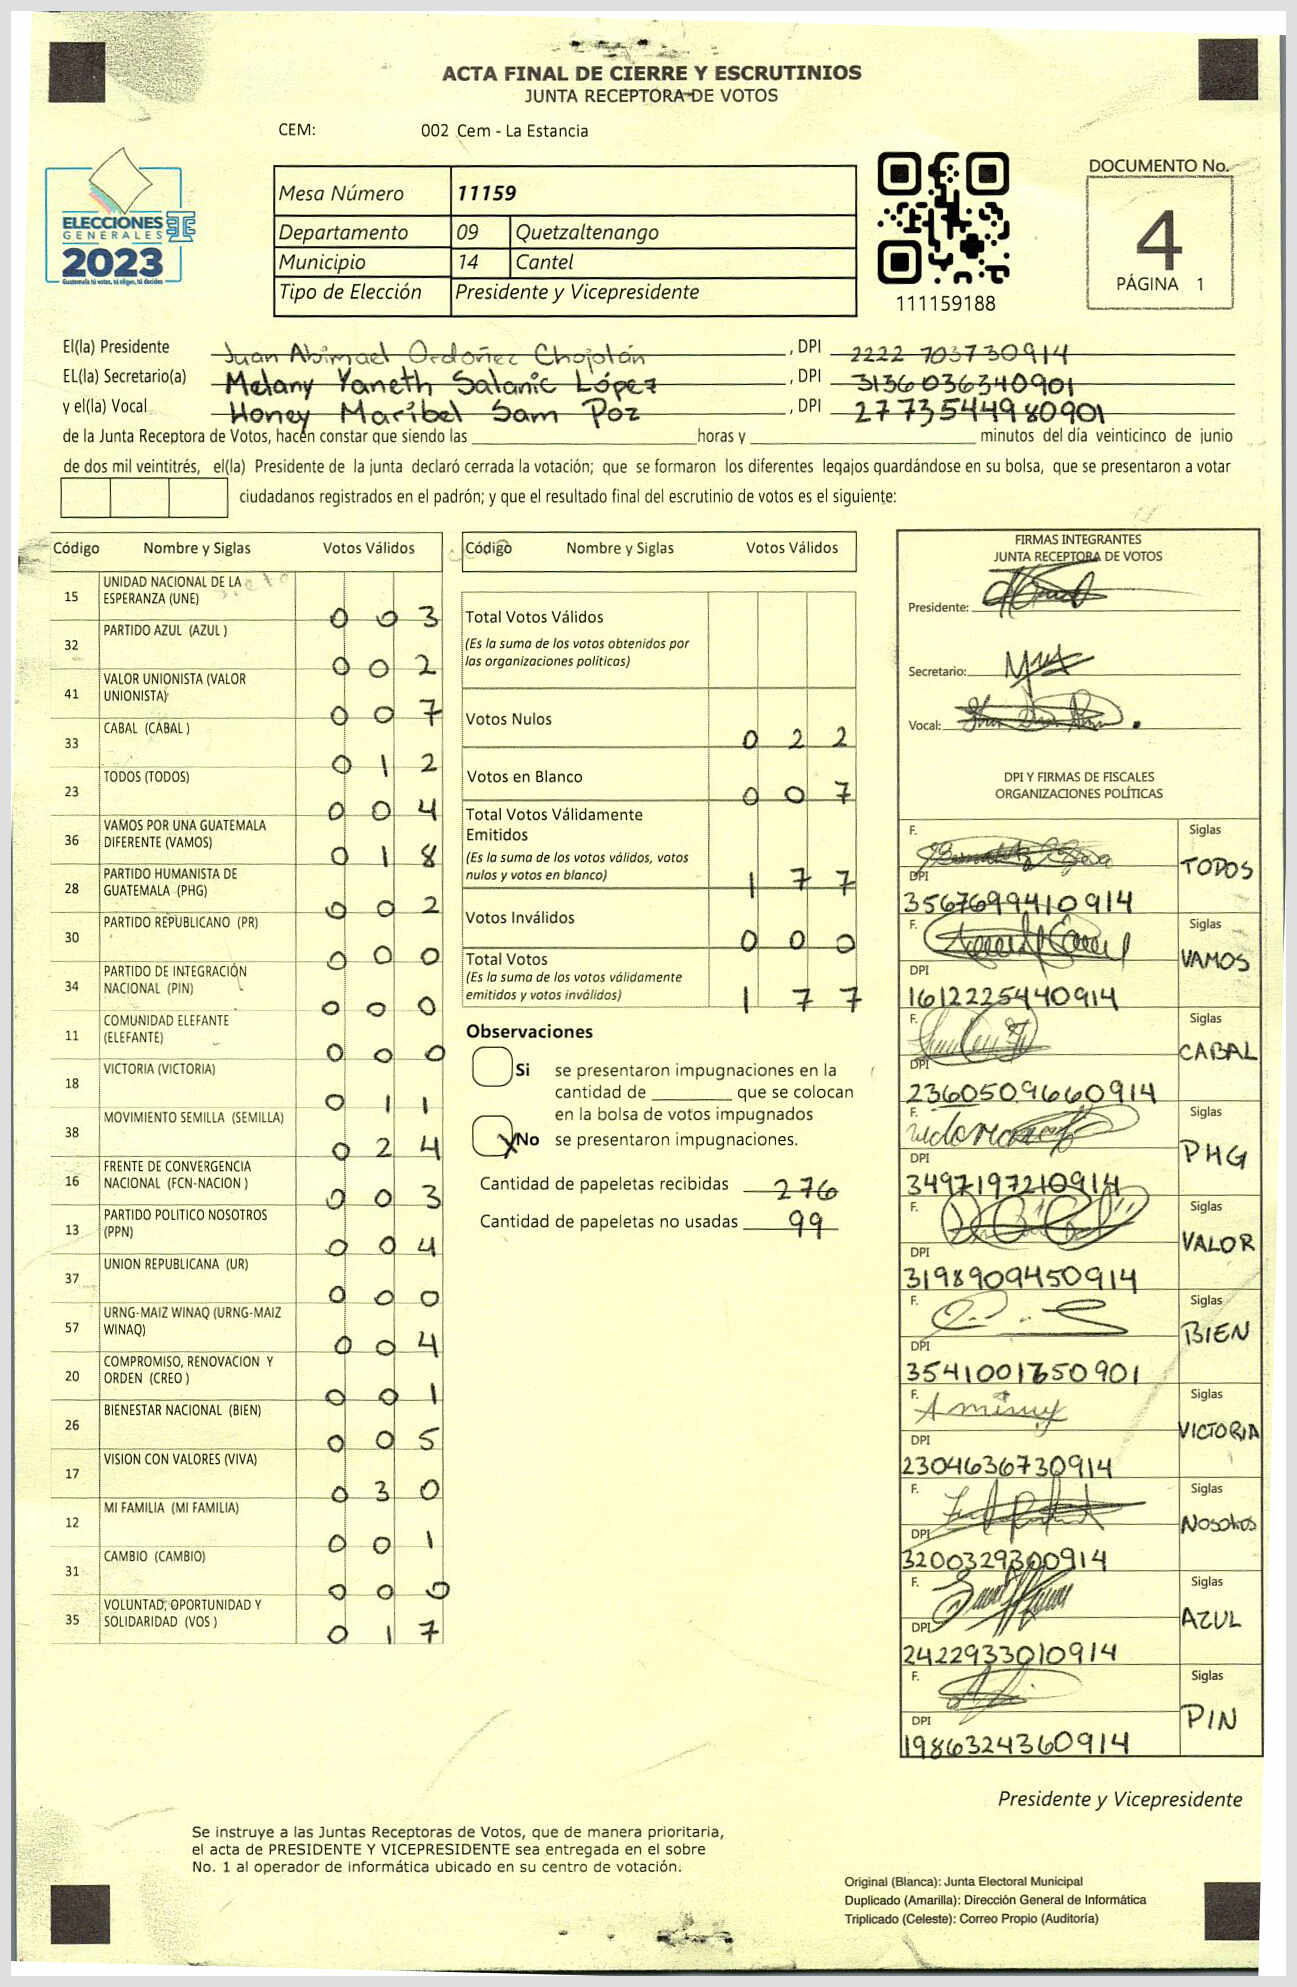 ACTA FINAL DE CIERRE Y ESCRUTINIOS
JUNTA RECEPTORA DE VOTOS
CEM: 002 Cem - La Estancia
ELECCIONES
GENERALES
2023
Guatemala tú votas, tú eliges, tú decides
Mesa Número 11159
Departamento 09 Quetzaltenango
Municipio 14 Cantel
Tipo de Elección Presidente y Vicepresidente
111159188
DOCUMENTO No.
4
PÁGINA 1
El(la) Presidente Juan Abimael Ordoñez Chojolán , DPI 2222 703730914
EL(la) Secretario(a) Melany Yaneth Salanic López , DPI 3136036340901
y el(la) Vocal Honey Maribel Sam Poz , DPI 2773544980901
de la Junta Receptora de Votos, hacen constar que siendo las horas y minutos del día veinticinco de junio
de dos mil veintitrés, el(la) Presidente de la junta declaró cerrada la votación; que se formaron los diferentes legajos guardándose en su bolsa, que se presentaron a votar
ciudadanos registrados en el padrón; y que el resultado final del escrutinio de votos es el siguiente:
Código Nombre y Siglas Votos Válidos
15 UNIDAD NACIONAL DE LA ESPERANZA (UNE) 0 0 3
32 PARTIDO AZUL (AZUL ) 0 0 2
41 VALOR UNIONISTA (VALOR UNIONISTA) 0 0 7
33 CABAL (CABAL ) 0 1 2
23 TODOS (TODOS) 0 0 4
36 VAMOS POR UNA GUATEMALA DIFERENTE (VAMOS) 0 1 8
28 PARTIDO HUMANISTA DE GUATEMALA (PHG) 0 0 2
30 PARTIDO REPUBLICANO (PR) 0 0 0
34 PARTIDO DE INTEGRACIÓN NACIONAL (PIN) 0 0 0
11 COMUNIDAD ELEFANTE (ELEFANTE) 0 0 0
18 VICTORIA (VICTORIA) 0 1 1
38 MOVIMIENTO SEMILLA (SEMILLA) 0 2 4
16 FRENTE DE CONVERGENCIA NACIONAL (FCN-NACION ) 0 0 3
13 PARTIDO POLITICO NOSOTROS (PPN) 0 0 4
37 UNION REPUBLICANA (UR) 0 0 0
57 URNG-MAIZ WINAQ (URNG-MAIZ WINAQ) 0 0 4
20 COMPROMISO, RENOVACION Y ORDEN (CREO ) 0 0 1
26 BIENESTAR NACIONAL (BIEN) 0 0 5
17 VISION CON VALORES (VIVA) 0 3 0
12 MI FAMILIA (MI FAMILIA) 0 0 1
31 CAMBIO (CAMBIO) 0 0 0
35 VOLUNTAD, OPORTUNIDAD Y SOLIDARIDAD (VOS ) 0 1 7
Código Nombre y Siglas Votos Válidos
Total Votos Válidos
(Es la suma de los votos obtenidos por
las organizaciones políticas)
Votos Nulos 0 2 2
Votos en Blanco 0 0 7
Total Votos Válidamente
Emitidos
(Es la suma de los votos válidos, votos
nulos y votos en blanco) 1 7 7
Votos Inválidos 0 0 0
Total Votos
(Es la suma de los votos válidamente
emitidos y votos inválidos) 1 7 7
Observaciones
Si se presentaron impugnaciones en la
cantidad de que se colocan
en la bolsa de votos impugnados
X No se presentaron impugnaciones.
Cantidad de papeletas recibidas 276
Cantidad de papeletas no usadas 99
FIRMAS INTEGRANTES
JUNTA RECEPTORA DE VOTOS
Presidente:
Secretario:
Vocal:
DPI Y FIRMAS DE FISCALES
ORGANIZACIONES POLÍTICAS
F. Siglas
TODOS
DPI
3567699410914
F. Siglas
VAMOS
DPI
1612225440914
F. Siglas
CABAL
DPI
2360509660914
F. Siglas
PHG
DPI
3497197210914
F. Siglas
VALOR
DPI
3198909450914
F. Siglas
BIEN
DPI
3541001650901
F. Siglas
VICTORIA
DPI
2304636730914
F. Siglas
Nosotros
DPI
3200329300914
F. Siglas
AZUL
DPI
2422933010914
F. Siglas
PIN
DPI
1986324360914
Presidente y Vicepresidente
Se instruye a las Juntas Receptoras de Votos, que de manera prioritaria,
el acta de PRESIDENTE Y VICEPRESIDENTE sea entregada en el sobre
No. 1 al operador de informática ubicado en su centro de votación.
Original (Blanca): Junta Electoral Municipal
Duplicado (Amarilla): Dirección General de Informática
Triplicado (Celeste): Correo Propio (Auditoría)